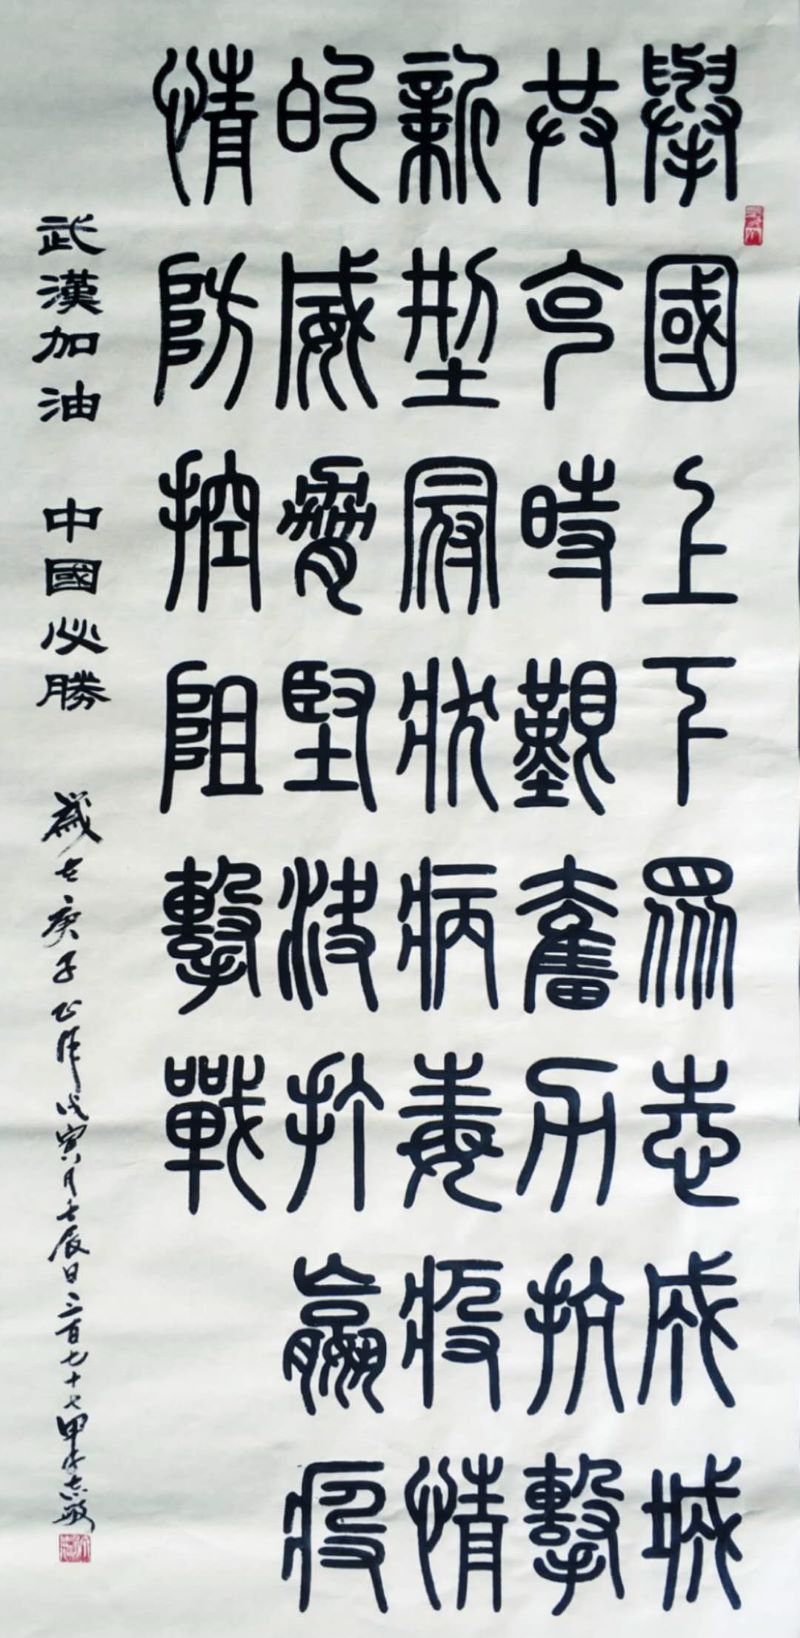 舉國上下眾志成城
共克時艱奮力抗擊
新型冠狀病毒疫情
的威脅堅決打贏疫
情防控阻擊戰
武漢加油 中國必勝 歲在庚子正 戊寅月壬辰日三百七十七甲 志敏